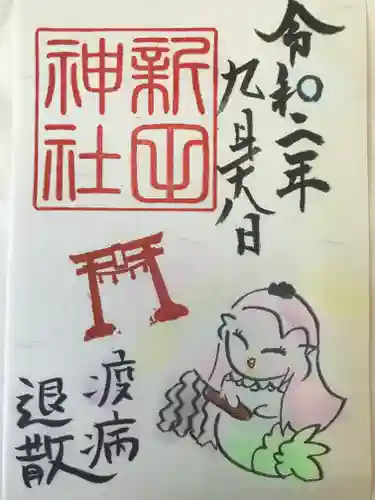 令和二年
九月十八日
新田
神社
疫病
退散